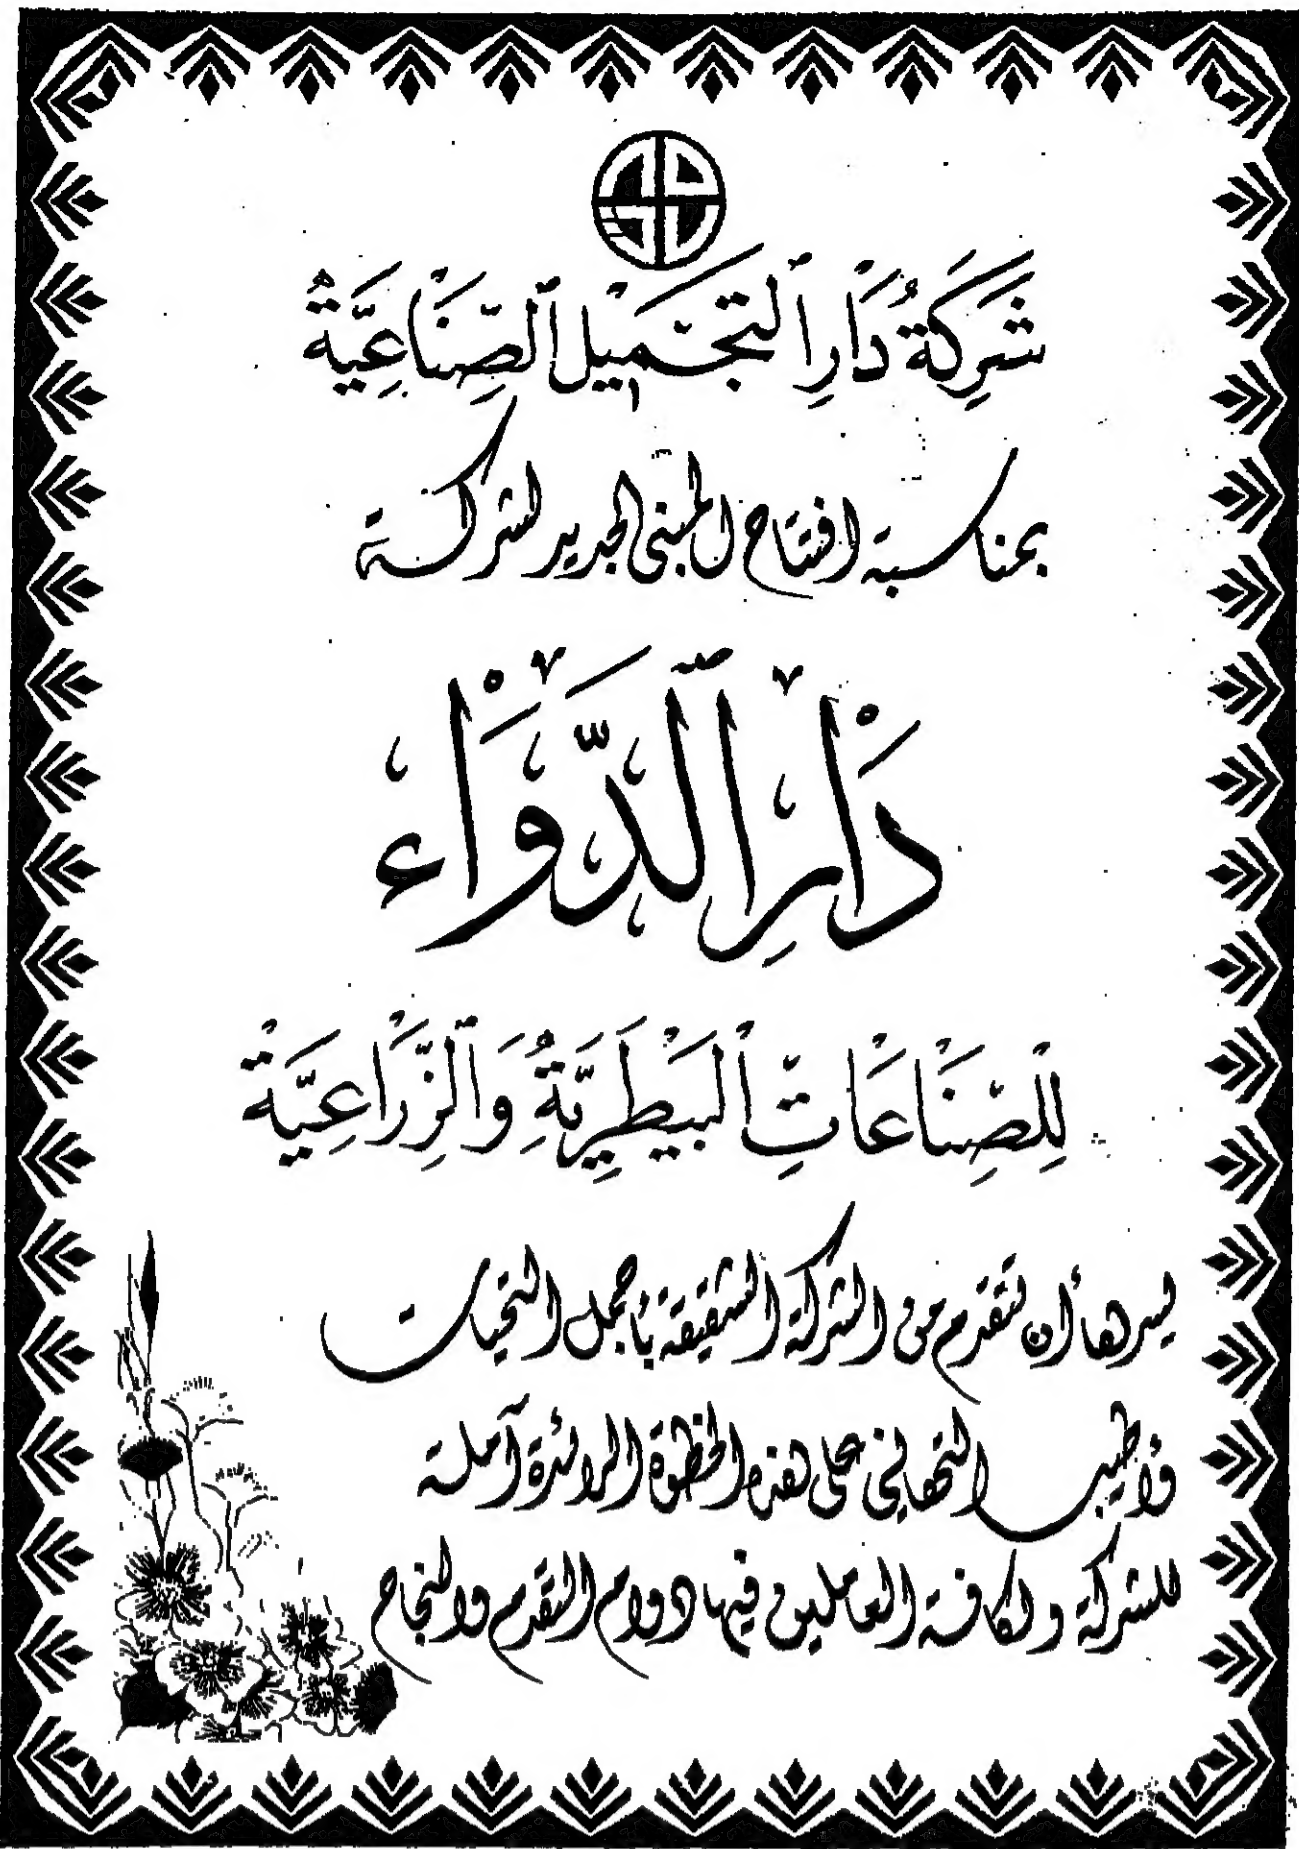 شَرِكَةُ دَارِ ٱلتَّجْمِيلِ ٱلصِّنَاعِيَّةُ
بمناسبة افتتاح المبنى الجديد لشركة
دَارِ ٱلدَّوَاءِ
لِلصِّنَاعَاتِ ٱلْبَيْطَرِيَّةِ وَٱلزِّرَاعِيَّةِ
يسرها أن تتقدم من الشركة الشقيقة بأجمل التحيات
وأطيب التهاني على هذه الخطوة الرائدة آملة
للشركة ولكافة العاملين فيها دوام التقدم والنجاح